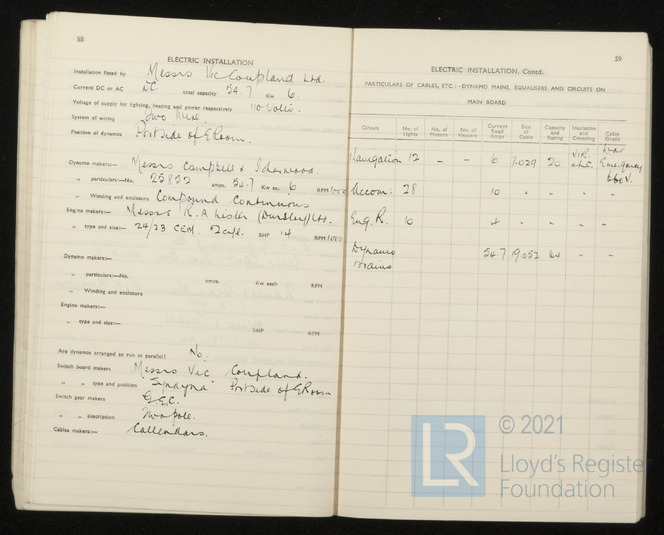 58
ELECTRIC INSTALLATION
Installation fitted by Messrs Vic Coupland Ltd.
Current DC or AC DC. total capacity 54.7 Kw 6.
Voltage of supply for lighting, heating and power respectively 110 volts.
System of wiring Two Wire
Position of dynamos Portside of E Room.
Dynamo makers:— Messrs Campbell & Isherwood.
„ particulars:—No. 25852 amps. 54.7 Kw ea. 6 RPM
„ Winding and enclosure Compound Continuous
Engine makers:— Messrs R. A Lister (Dursley) Ltd.
„ type and size:— 24/23 CEM. 2 cyl. BHP 14 RPM
Dynamo makers:—
„ particulars:—No. amps. Kw each RPM
„ Winding and enclosure
Engine makers:—
„ type and size:— BHP RPM
Are dynamos arranged to run in parallel? No.
Switch board makers Messrs Vic Coupland.
„ „ type and position Portside of E Room
Switch gear makers G.E.C.
„ „ description Two pole.
Cables makers:— Callendars.
59
ELECTRIC INSTALLATION, Contd.
PARTICULARS OF CABLES, ETC.:—DYNAMO MAINS, EQUALISERS AND CIRCUITS ON
MAIN BOARD
Circuit. No. of Lights No. of Motors No. of Heaters Current Road Amps Size of Cable Capacity and Rating Insulation and Covering Cable Grade
Navigation 12 – – 6 7.029 20 V.I.R. War Emergency 660 V.
Accom: 28 10 " " – –
Eng. R. 10 4 – " – –
Dynamo Mains 54.7 19.052 64 – –
© 2021
LR
Lloyd's Register
Foundation